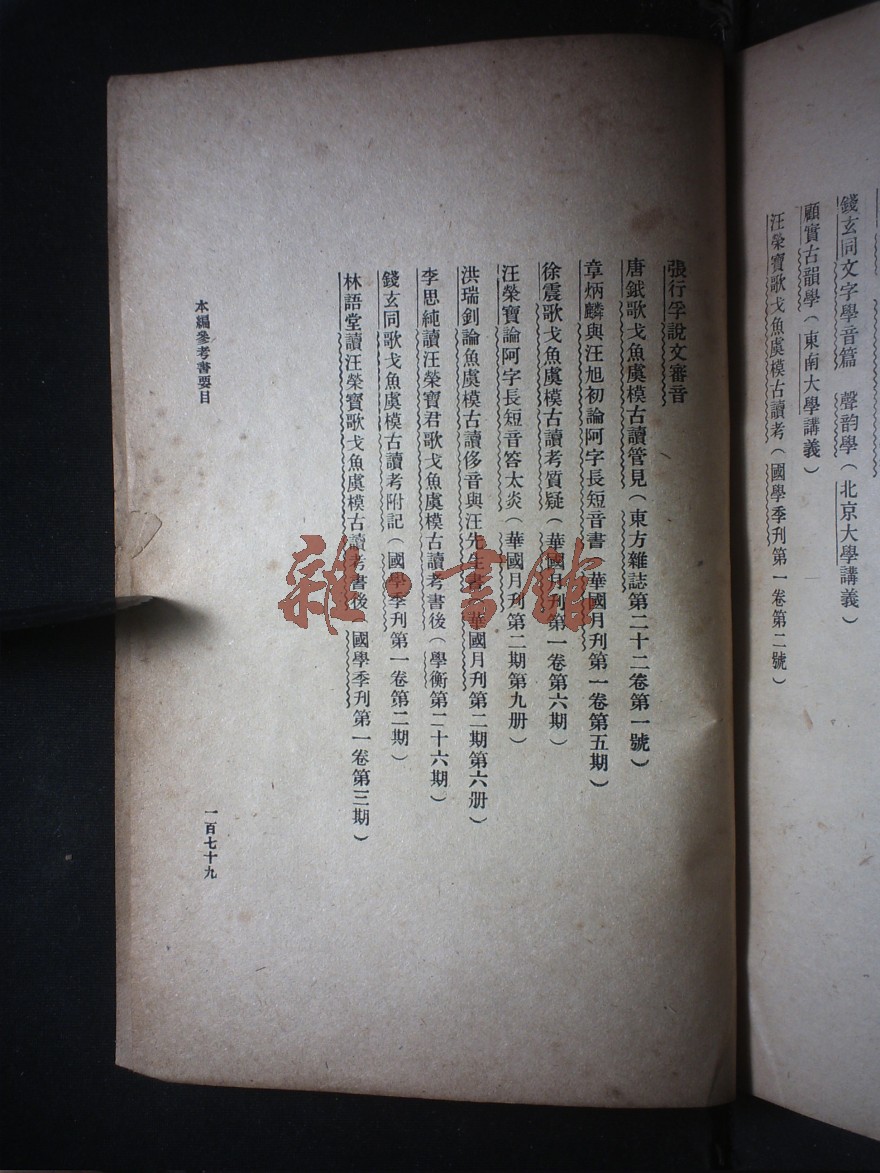 錢玄同文字學音篇 聲韵學(北京大學講義)
顧實古韻學(東南大學講義)
汪榮寶歌戈魚虞模古讀考(國學季刊第一卷第二號)
張行孚說文審音
唐鉞歌戈魚虞模古讀管見(東方雜誌第二十二卷第一號)
章炳麟與汪旭初論阿字長短音書(華國月刊第一卷第五期)
徐震歌戈魚虞模古讀考質疑(華國月刊第一卷第六期)
汪榮寶論阿字長短音答太炎(華國月刊第二期第九册)
洪瑞釗論魚虞模古讀侈音與汪先生書(華國月刊第二期第六册)
李思純讀汪榮寶君歌戈魚虞模古讀考書後(學衡第二十六期)
錢玄同歌戈魚虞模古讀考附記(國學季刊第一卷第二期)
林語堂讀汪榮寶歌戈魚虞模古讀考書後(國學季刊第一卷第三期)
本編參考書要目
一百七十九
雜·書館